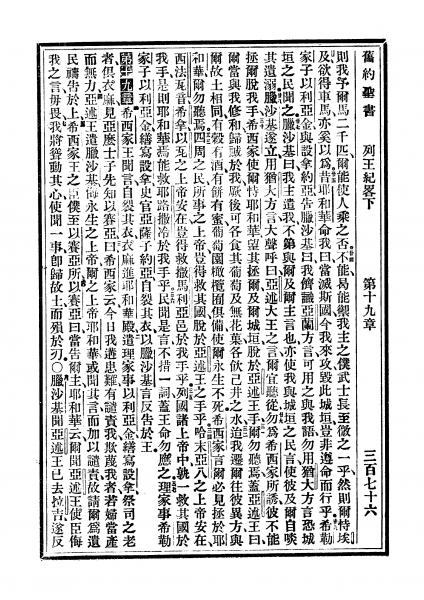 舊約聖書 列王紀畧下 第十九章 三百七十六
則我予爾馬二千匹爾能使人乘之否不能曷能禦我主之僕武士長至微之一乎然則爾恃埃
及欲得車馬亦奚以爲昔耶和華命我曰當滅斯國今我來攻毀此城豈非遵命而行乎希勒
家子以利亞金與設拿約亞告臘沙基曰我儕識亞蘭方言可用之與我語勿用猶大方言恐城
垣之民聞之臘沙基曰我主遣我不第與爾及爾主言也亦使我與城垣之民言使彼及爾自啖
其遺溺臘沙基遂立用猶大方言大聲呼曰亞述大王之言爾宜聽從勿爲希西家所誘彼不能
拯爾脫我手希西家使爾恃耶和華望其拯爾及爾城垣脫於亞述王手爾勿聽焉蓋亞述王曰
爾當與我修和歸誠於我厥後可各食其葡萄及無花菓各飲己井之水迨我遷爾往彼異方與
爾故土相同有穀有酒有餅有蜜葡萄園橄欖園俱備使爾永生不死希西家言爾必見拯於耶
和華爾勿聽焉四周之民所事之上帝豈得救其國脫於亞述王之手乎哈末亞八之上帝安在
西法瓦音希拿以瓦之上帝安在豈得救撒馬利亞邑於我手乎列國諸上帝中孰一救其國於
我手是則耶和華焉能救耶路撒冷於我手乎民聞是言不措一詞蓋王命勿應之理家事希勒
家子以利亞金繕寫設拿史官亞薩子約亞自裂其衣以臘沙基言反告於王
第十九章 希西家王聞言自裂其衣衣麻進耶和華殿遣理家事以利亞金繕寫設拿祭司之老
者俱衣麻見亞麼士子先知以賽亞曰希西家云今日我遘患難有譴責我欺蔑我者若婦當產
而無力亞述王遣臘沙基侮永生之上帝爾之上帝耶和華或聞其言而加以譴責故請爾爲遺
民禱告於上希西家王之臣僕至以賽亞所以賽亞曰當告爾主耶和華云爾聞亞述王使臣侮
我之言毋畏我將聳動其心使聞一事卽歸故土而殞於刃○臘沙基聞亞述王已去拉吉遂反